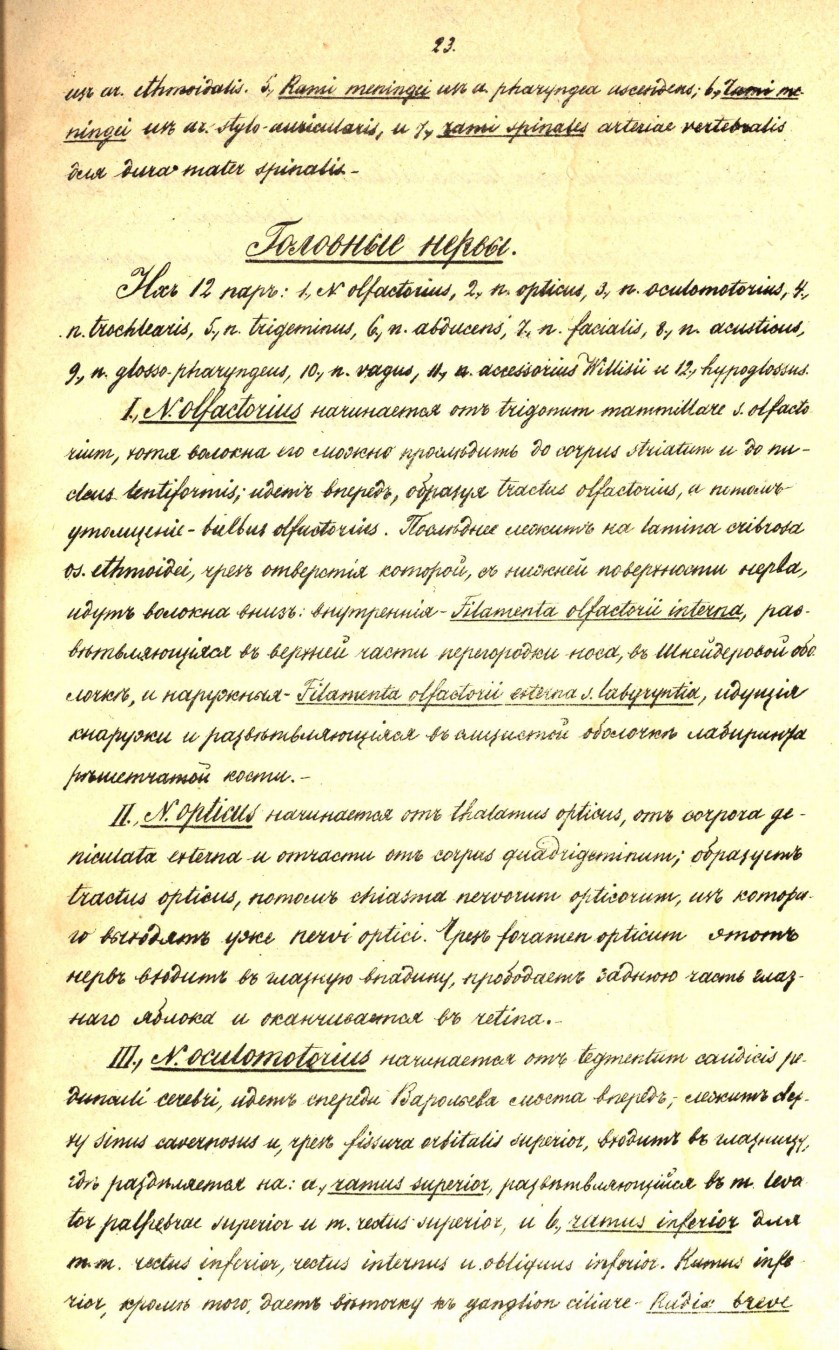 23.
изъ ar. ethmoidalis. 5, Rami meningei изъ a. pharyngea ascendens; 6, rami me-
ningei изъ ar. stylo-auricularis, и 7, rami spinales arteriae vertebralis
для dura mater spinalis.-
Головные нервы.
Ихъ 12 паръ: 1, N olfactorius, 2, n. opticus, 3, n. oculomotorius, 4,
n. trochlearis, 5, n. trigeminus, 6, n. abducens, 7, n. facialis, 8, n. acusticus,
9, n. glosso-pharyngeus, 10, n. vagus, 11, n. accessorius Willisii и 12, hypoglossus.
I., N. olfactorius начинается отъ trigonum mammillare s. olfacto
rium, хотя волокна его можно прослѣдить до corpus striatum и до nu-
cleus lentiformis; идетъ впередъ, образуя tractus olfactorius, а потомъ-
утолщеніе - bulbus olfactorius. Послѣднее лежитъ на lamina cribrosa
os. ethmoidei, чрезъ отверстія которой, съ нижней поверхности нерва,
идутъ волокна внизъ: внутреннія - Filamenta olfactorii interna, раз-
вѣтвляющіяся въ верхней части перегородки носа, въ Шнейдеровой обо
лочкѣ, и наружныя - Filamenta olfactorii externa s. labyryntia, идущія
кнаружи и развѣтвляющіяся въ слизистой оболочкѣ лабиринта
рѣшетчатой кости.-
II., N. opticus начинается отъ thalamus opticus, отъ corpora ge-
niculata externa и отчасти отъ corpus quadrigeminum; образуетъ
tractus opticus, потомъ chiasma nervorum opticorum, изъ которо-
го выходятъ уже nervi optici. Чрезъ foramen opticum этотъ
нервъ входитъ въ глазную впадину, прободаетъ заднюю часть глаз-
наго яблока и оканчивается въ retina.-
III., N. oculomotorius начинается отъ tegmentum caudicis pe-
dunculi cerebri, идетъ спереди Варольева моста впередъ; лежитъ свер-
ху sinus cavernosus и, чрезъ fissura orbitalis superior, входитъ въ глазницу,
гдѣ раздѣляется на: a, ramus superior, развѣтвляющійся въ m. leva
tor palpebrae superior и m. rectus superior, и b, ramus inferior для
m.m. rectus inferior, rectus internus и obliquus inferior. Ramus infe-
rior, кромѣ того, даетъ вѣточку къ ganglion ciliare - Radix breve